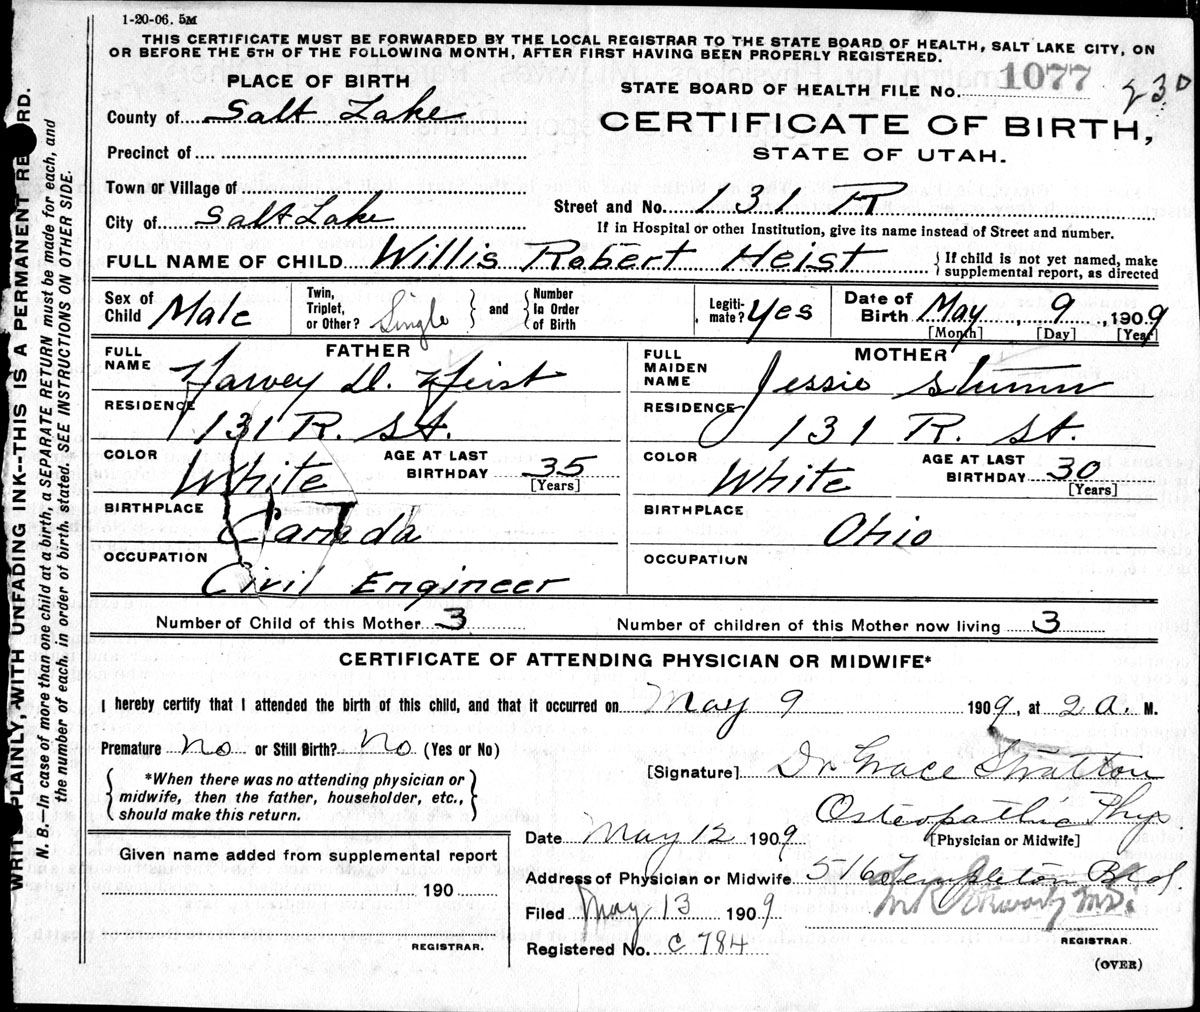 1-20-06. 5M
THIS CERTIFICATE MUST BE FORWARDED BY THE LOCAL REGISTRAR TO THE STATE BOARD OF HEALTH, SALT LAKE CITY, ON
OR BEFORE THE 5TH OF THE FOLLOWING MONTH, AFTER FIRST HAVING BEEN PROPERLY REGISTERED.
PLACE OF BIRTH
STATE BOARD OF HEALTH FILE No. 1077 230
County of Salt Lake
CERTIFICATE OF BIRTH,
Precinct of
STATE OF UTAH.
Town or Village of
Street and No. 131 R
City of Salt Lake
If in Hospital or other Institution, give its name instead of Street and number.
FULL NAME OF CHILD Willis Robert Heist
{If child is not yet named, make
supplemental report, as directed
Sex of Child Male
Twin, Triplet, or Other? Single } and { Number In Order of Birth
Legitimate? Yes
Date of Birth May, 9, 1909
[Month] [Day] [Year]
FATHER
FULL NAME Harvey D. Heist
RESIDENCE 131 R. St.
COLOR White
AGE AT LAST BIRTHDAY 35
[Years]
BIRTHPLACE Canada
OCCUPATION Civil Engineer
MOTHER
FULL MAIDEN NAME Jessie
RESIDENCE 131 R. St.
COLOR White
AGE AT LAST BIRTHDAY 30
[Years]
BIRTHPLACE Ohio
OCCUPATION
Number of Child of this Mother 3
Number of children of this Mother now living 3
CERTIFICATE OF ATTENDING PHYSICIAN OR MIDWIFE*
I hereby certify that I attended the birth of this child, and that it occurred on May 9 1909, at 2 a. M.
Premature no or Still Birth? no (Yes or No)
{ *When there was no attending physician or
midwife, then the father, householder, etc.,
should make this return. }
[Signature] Dr Grace Stratton
Osteopathic Phys.
[Physician or Midwife]
Date May 12 1909
Address of Physician or Midwife 516 Templeton Bld.
Filed May 13 1909
M.D.
REGISTRAR.
Registered No. C 784
(OVER)
Given name added from supplemental report
190
REGISTRAR.
WRITE PLAINLY, WITH UNFADING INK--THIS IS A PERMANENT RECORD.
N. B.—In case of more than one child at a birth, a SEPARATE RETURN must be made for each, and
the number of each, in order of birth, stated. SEE INSTRUCTIONS ON OTHER SIDE.